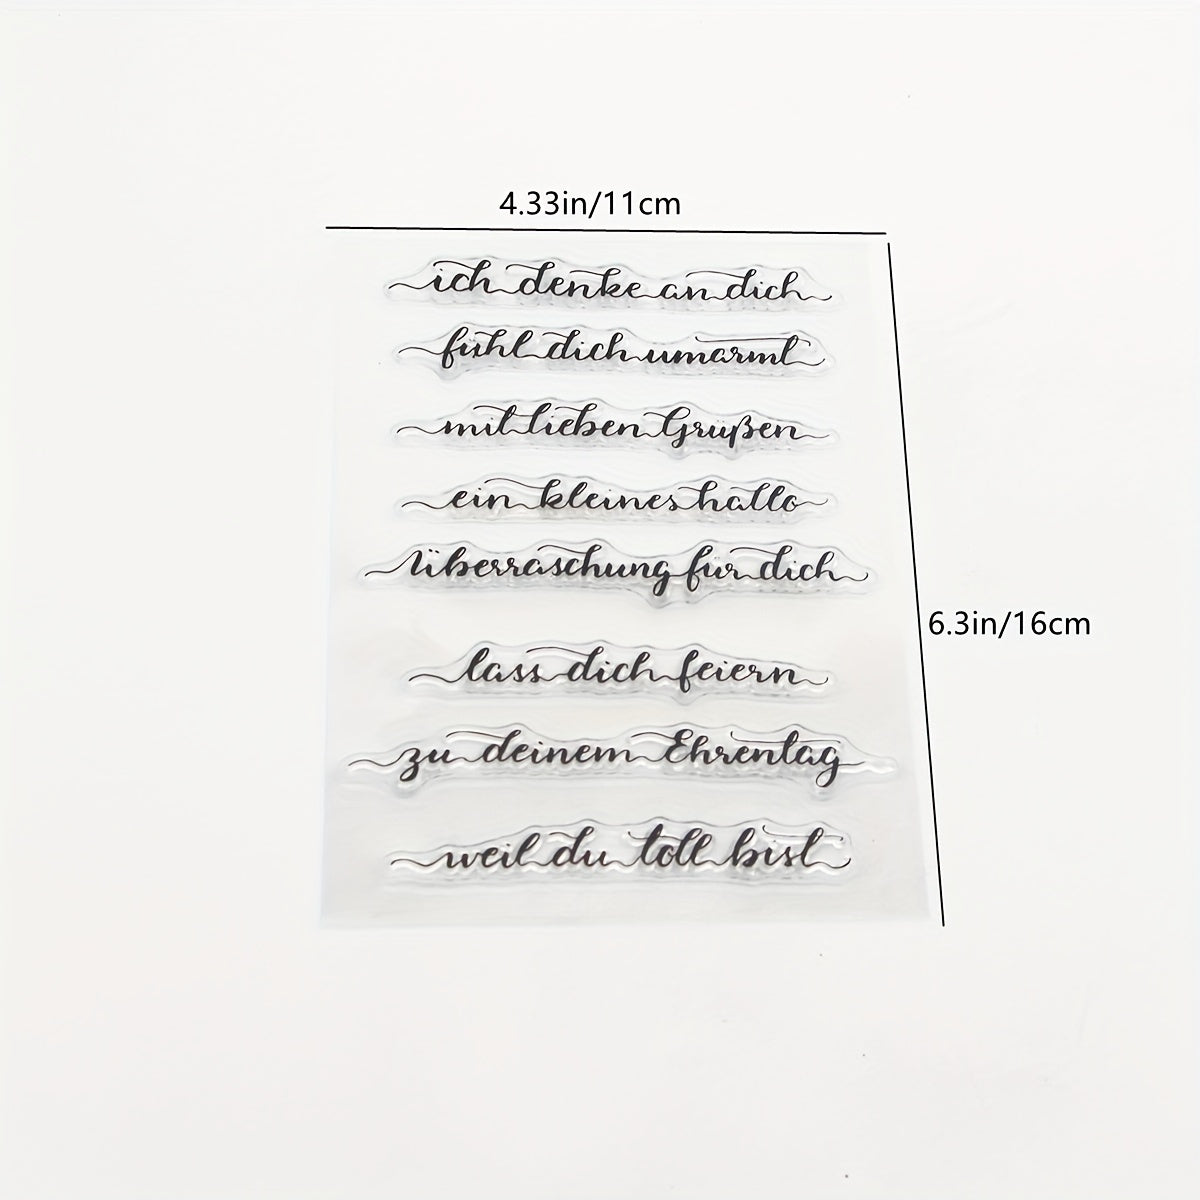 4.33in/11cm
ich denke an dich
fühl dich umarmt
mit lieben Grüßen
ein kleines hallo
Überraschung für dich
6.3in/16cm
lass dich feiern
zu deinem Ehrentag
weil du toll bist